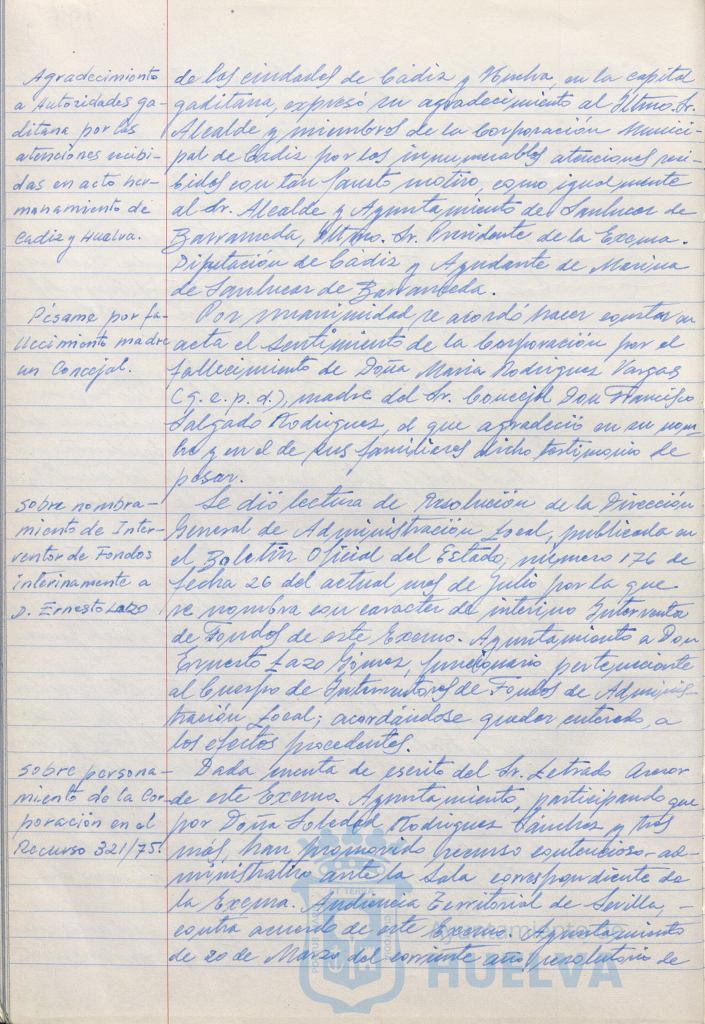 Agradecimiento
a Autoridades ga-
ditana por las
atenciones recibi-
das en acto her-
manamiento de
Cadiz y Huelva.
de las ciudades de Cádiz y Huelva, en la capital
gaditana, expresó su agradecimiento al Iltmo. Sr.
Alcalde y miembros de la Corporación Munici-
pal de Cádiz por las innumerables atenciones reci-
bidas con tan fausto motivo, como igualmente
al Sr. Alcalde y Ayuntamiento de Sanlucar de
Barrameda, Iltmo. Sr. Presidente de la Excma.
Diputación de Cádiz y Ayudante de Marina
de Sanlucar de Barrameda.
Pésame por fa-
llecimiento madre
un Concejal.
Por unanimidad se acordó hacer constar en
acta el sentimiento de la Corporación por el
fallecimiento de Doña Maria Rodriguez Vargas
(q. e. p. d.), madre del Sr. Concejal Don Francisco
Salgado Rodriguez, el que agradeció en su nom-
bre y en el de sus familiares dicho testimonio de
pesar.
Sobre nombra-
miento de Inter-
ventor de Fondos
interinamente a
D. Ernesto Lazo
Se dió lectura de Resolución de la Dirección
General de Administración Local, publicada en
el Boletín Oficial del Estado, número 176 de
fecha 26 del actual mes de Julio por la que
se nombra con caracter de interino Interventor
de Fondos de este Excmo. Ayuntamiento a Don
Ernesto Lazo Gómez, funcionario perteneciente
al Cuerpo de Interventores de Fondos de Adminis-
tración Local; acordándose quedar enterado, a
los efectos procedentes.
Sobre persona-
miento de la Cor-
poración en el
Recurso 321/75.
Dada cuenta de escrito del Sr. Letrado Asesor
de este Excmo. Ayuntamiento, participando que
por Doña Soledad Rodriguez Sánchez y tres
más, han promovido recurso contencioso-ad-
ministrativo ante la Sala correspondiente de
la Excma. Audiencia Territorial de Sevilla, -
contra acuerdo de este Excmo. Ayuntamiento
de 20 de Marzo del corriente año, resolutorio de
Ayuntamiento de
HUELVA